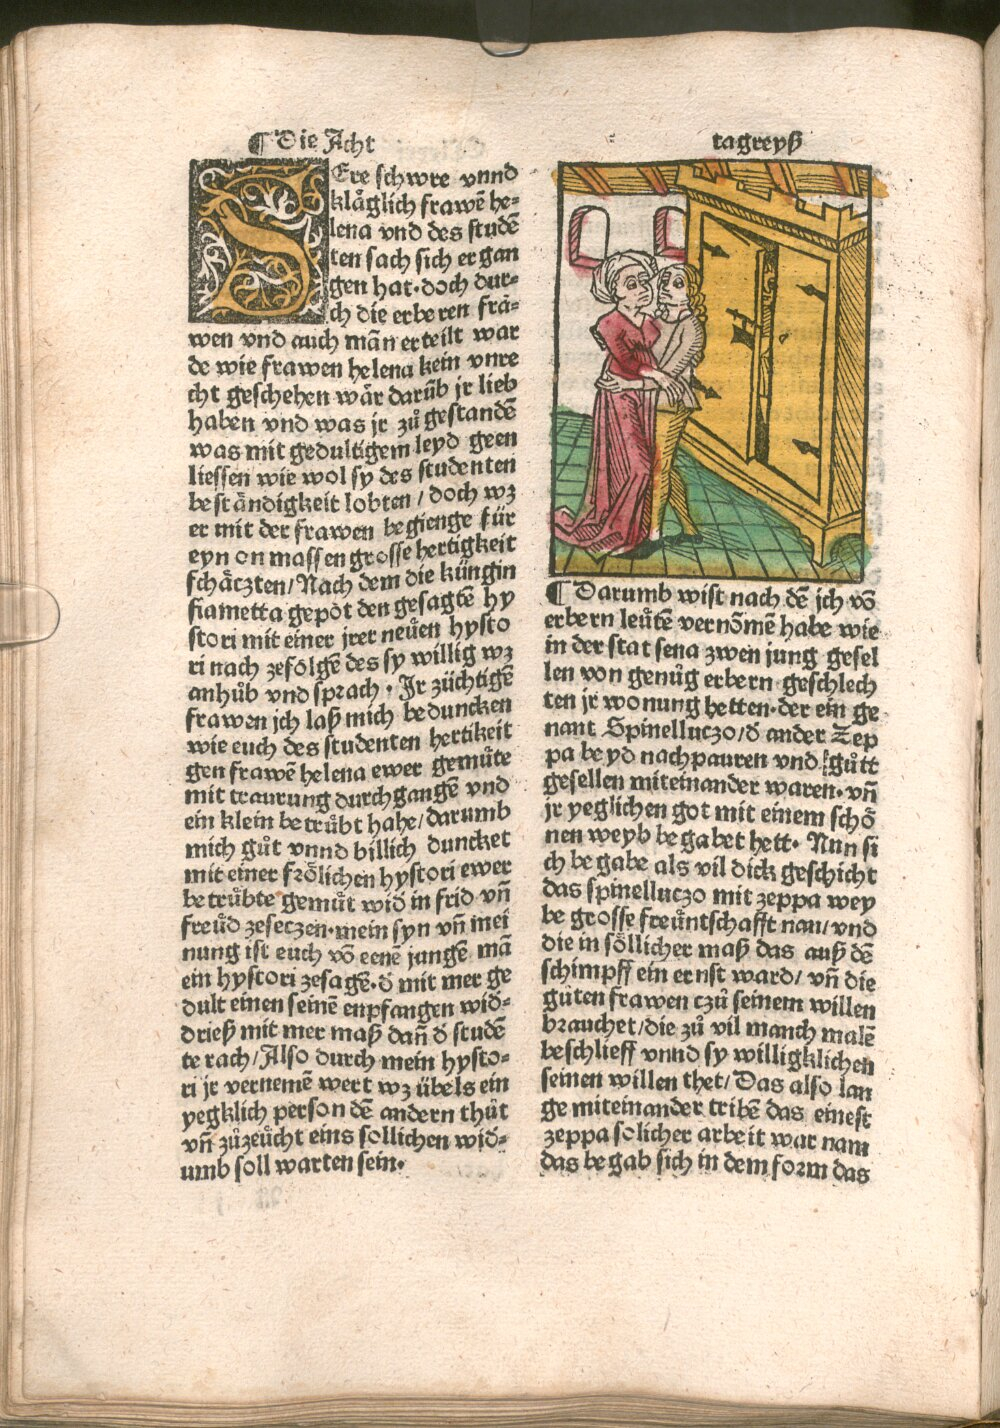 ¶ Die Acht
SEre schwre vnnd
kläglich frawē he-
lena vnd des studē
ten sach sich er gan
gen hat. doch dur-
ch die erbe ren fra-
wen vnd auch mān erteilt war
de wie frawen helena kein vnre
cht geschehen wår darūb jr lieb
haben vnd was jr zů gestandē
was mit gedultigem leyd geen
liessen wie wol sy des studenten
beständigkeit lobten / doch wz
er mit der frawen begienge für
eyn on massen grosse hertigkeit
schäczten / Nach dem die küngin
fiametta gepot den gesagtē hy
stori mit einer jrer neüen hysto
ri nach zefolgē des sy willig wz
anhůb vnd sprach . Jr züchtigē
frawen jch laß mich beduncken
wie euch des studenten hertikeit
gen frawē helena ewer gemüte
mit traurung durchgangē vnd
ein klein betrübt habe / darumb
mich gůt vnnd billich duncket
mit einer frölichen hystori ewer
betrübte gemüt wid̄ in frid vn̄
freüd zeseczen. mein syn vn̄ mei
nung ist euch vō eenē jungē mā
ein hystori zesagē. d̄ mit mer ge
dult einen seinē enpfangen wid̄-
drieß mit mer maß dan̄ d̄ studē
te rach / Also durch mein hysto-
ri jr vernemē wert wz übels ein
yegklich person dē andern thůt
vn̄ zůzeücht eins sollichen wid̄-
umb soll warten sein.
tagreyß
¶ Darumb wist nach dē jch vō
erbern leütē vernōmē habe wie
in der stat sena zwen jung gesel
len von genůg erbern geschlech
ten jr wonung hetten. der ein ge
nant Spinelluczo / d̄ ander Zep
pa beyd nachpauren vnd gůtt
gesellen miteinander waren. vn̄
jr yeglichen got mit einem schö
nen weyb begabet hett. Nun si
ch begabe als vil dick geschicht
das spinelluczo mit zeppa wey
be grosse freüntschafft nan / vnd
die in söllicher maß das auß dē
schimpff ein ernst ward / vn̄ die
gůten frawen czů seinem willen
brauchet / die zů vil manch malē
beschlieff vnnd sy willigklichen
seinen willen thet / Das also lan
ge miteinander tribē das einest
zeppa solicher arbeit war nam
das begab sich in dem form das